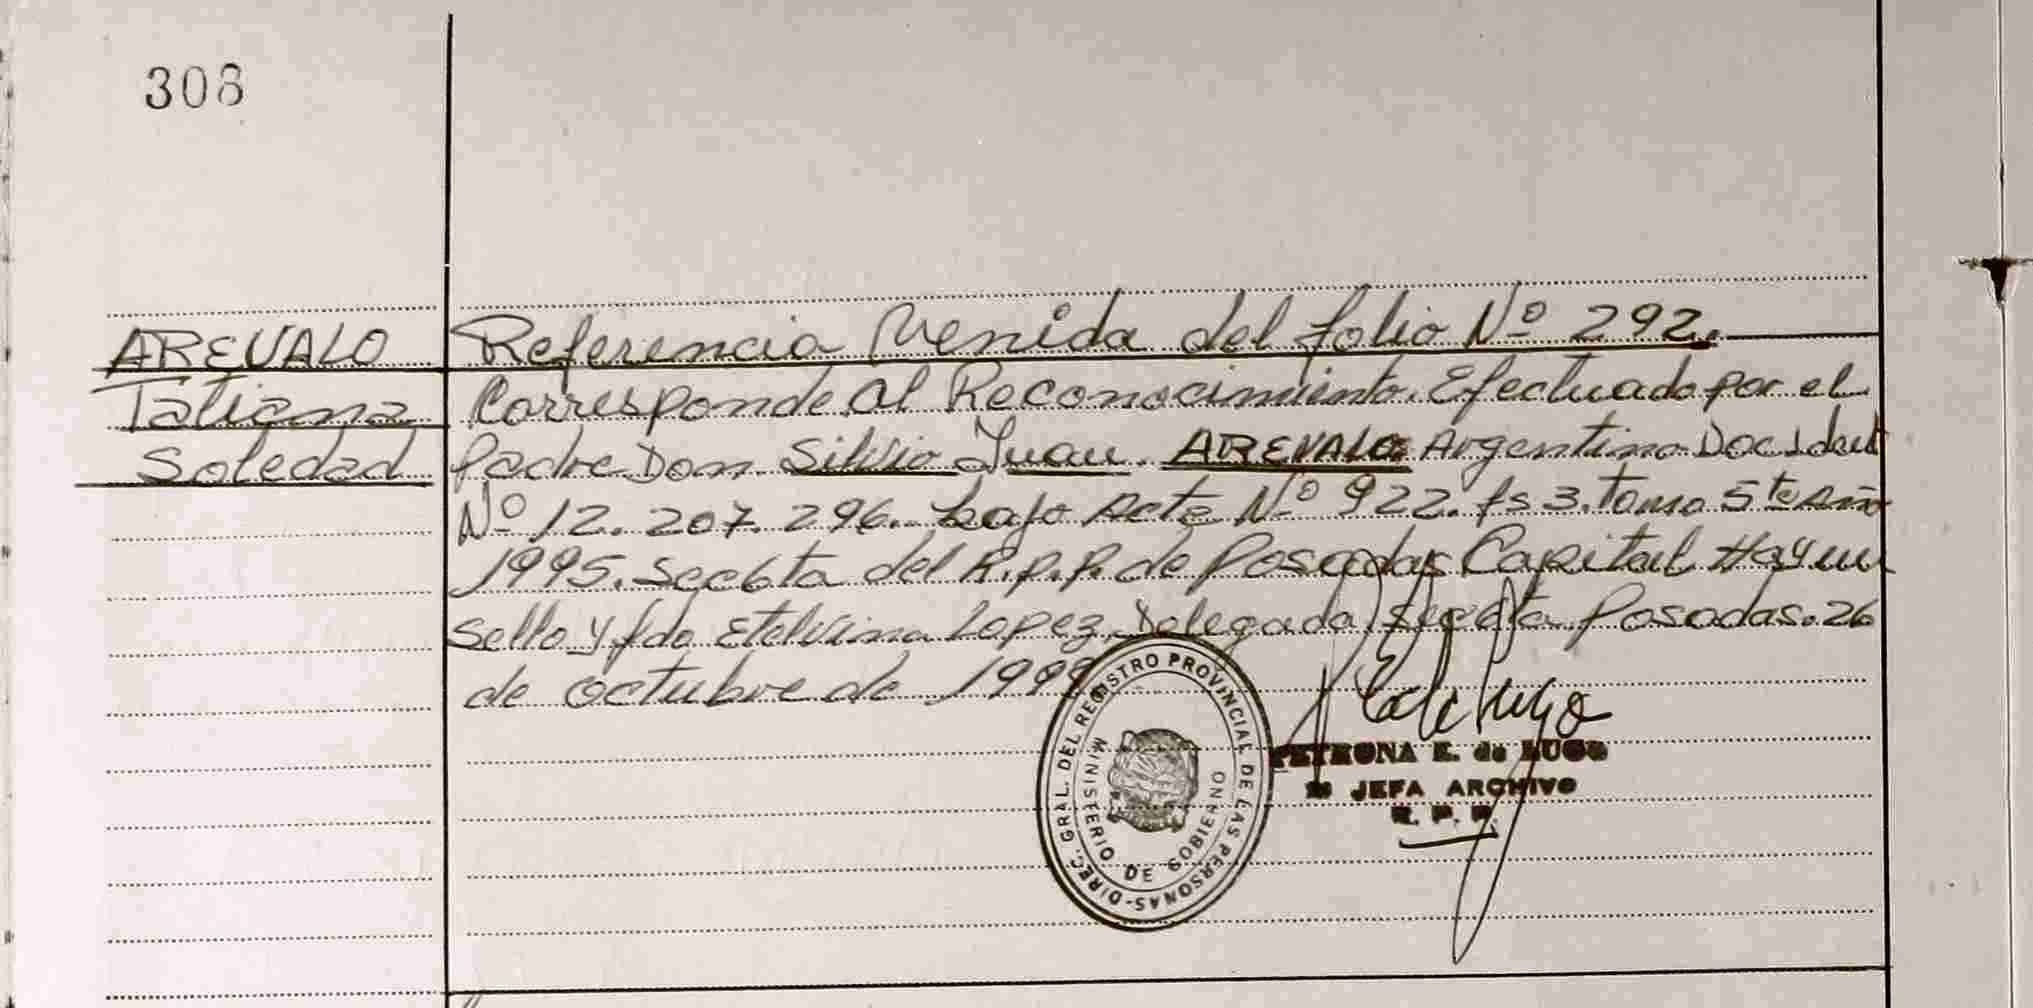 308
AREVALO
Tatiana
Soledad
Referencia Venida del folio Nº 292.
Corresponde al Reconocimiento. Efectuado por el
Padre Don Silvio Juan AREVALO Argentino Doc Ident
Nº 12.207.296. bajo Acta Nº 922. fs 3. tomo 5to Año
1995. Sec 6ta del R.P.P. de Posadas Capital Hay un
sello y fdo Etelvina Lopez Delegada Sec 6ta Posadas. 26
de octubre de 199
DIREC. GRAL. DEL REGISTRO PROVINCIAL DE LAS PERSONAS-
MINISTERIO DE GOBIERNO
PETRONA E. de LUGO
JEFA ARCHIVO
R. P. P.